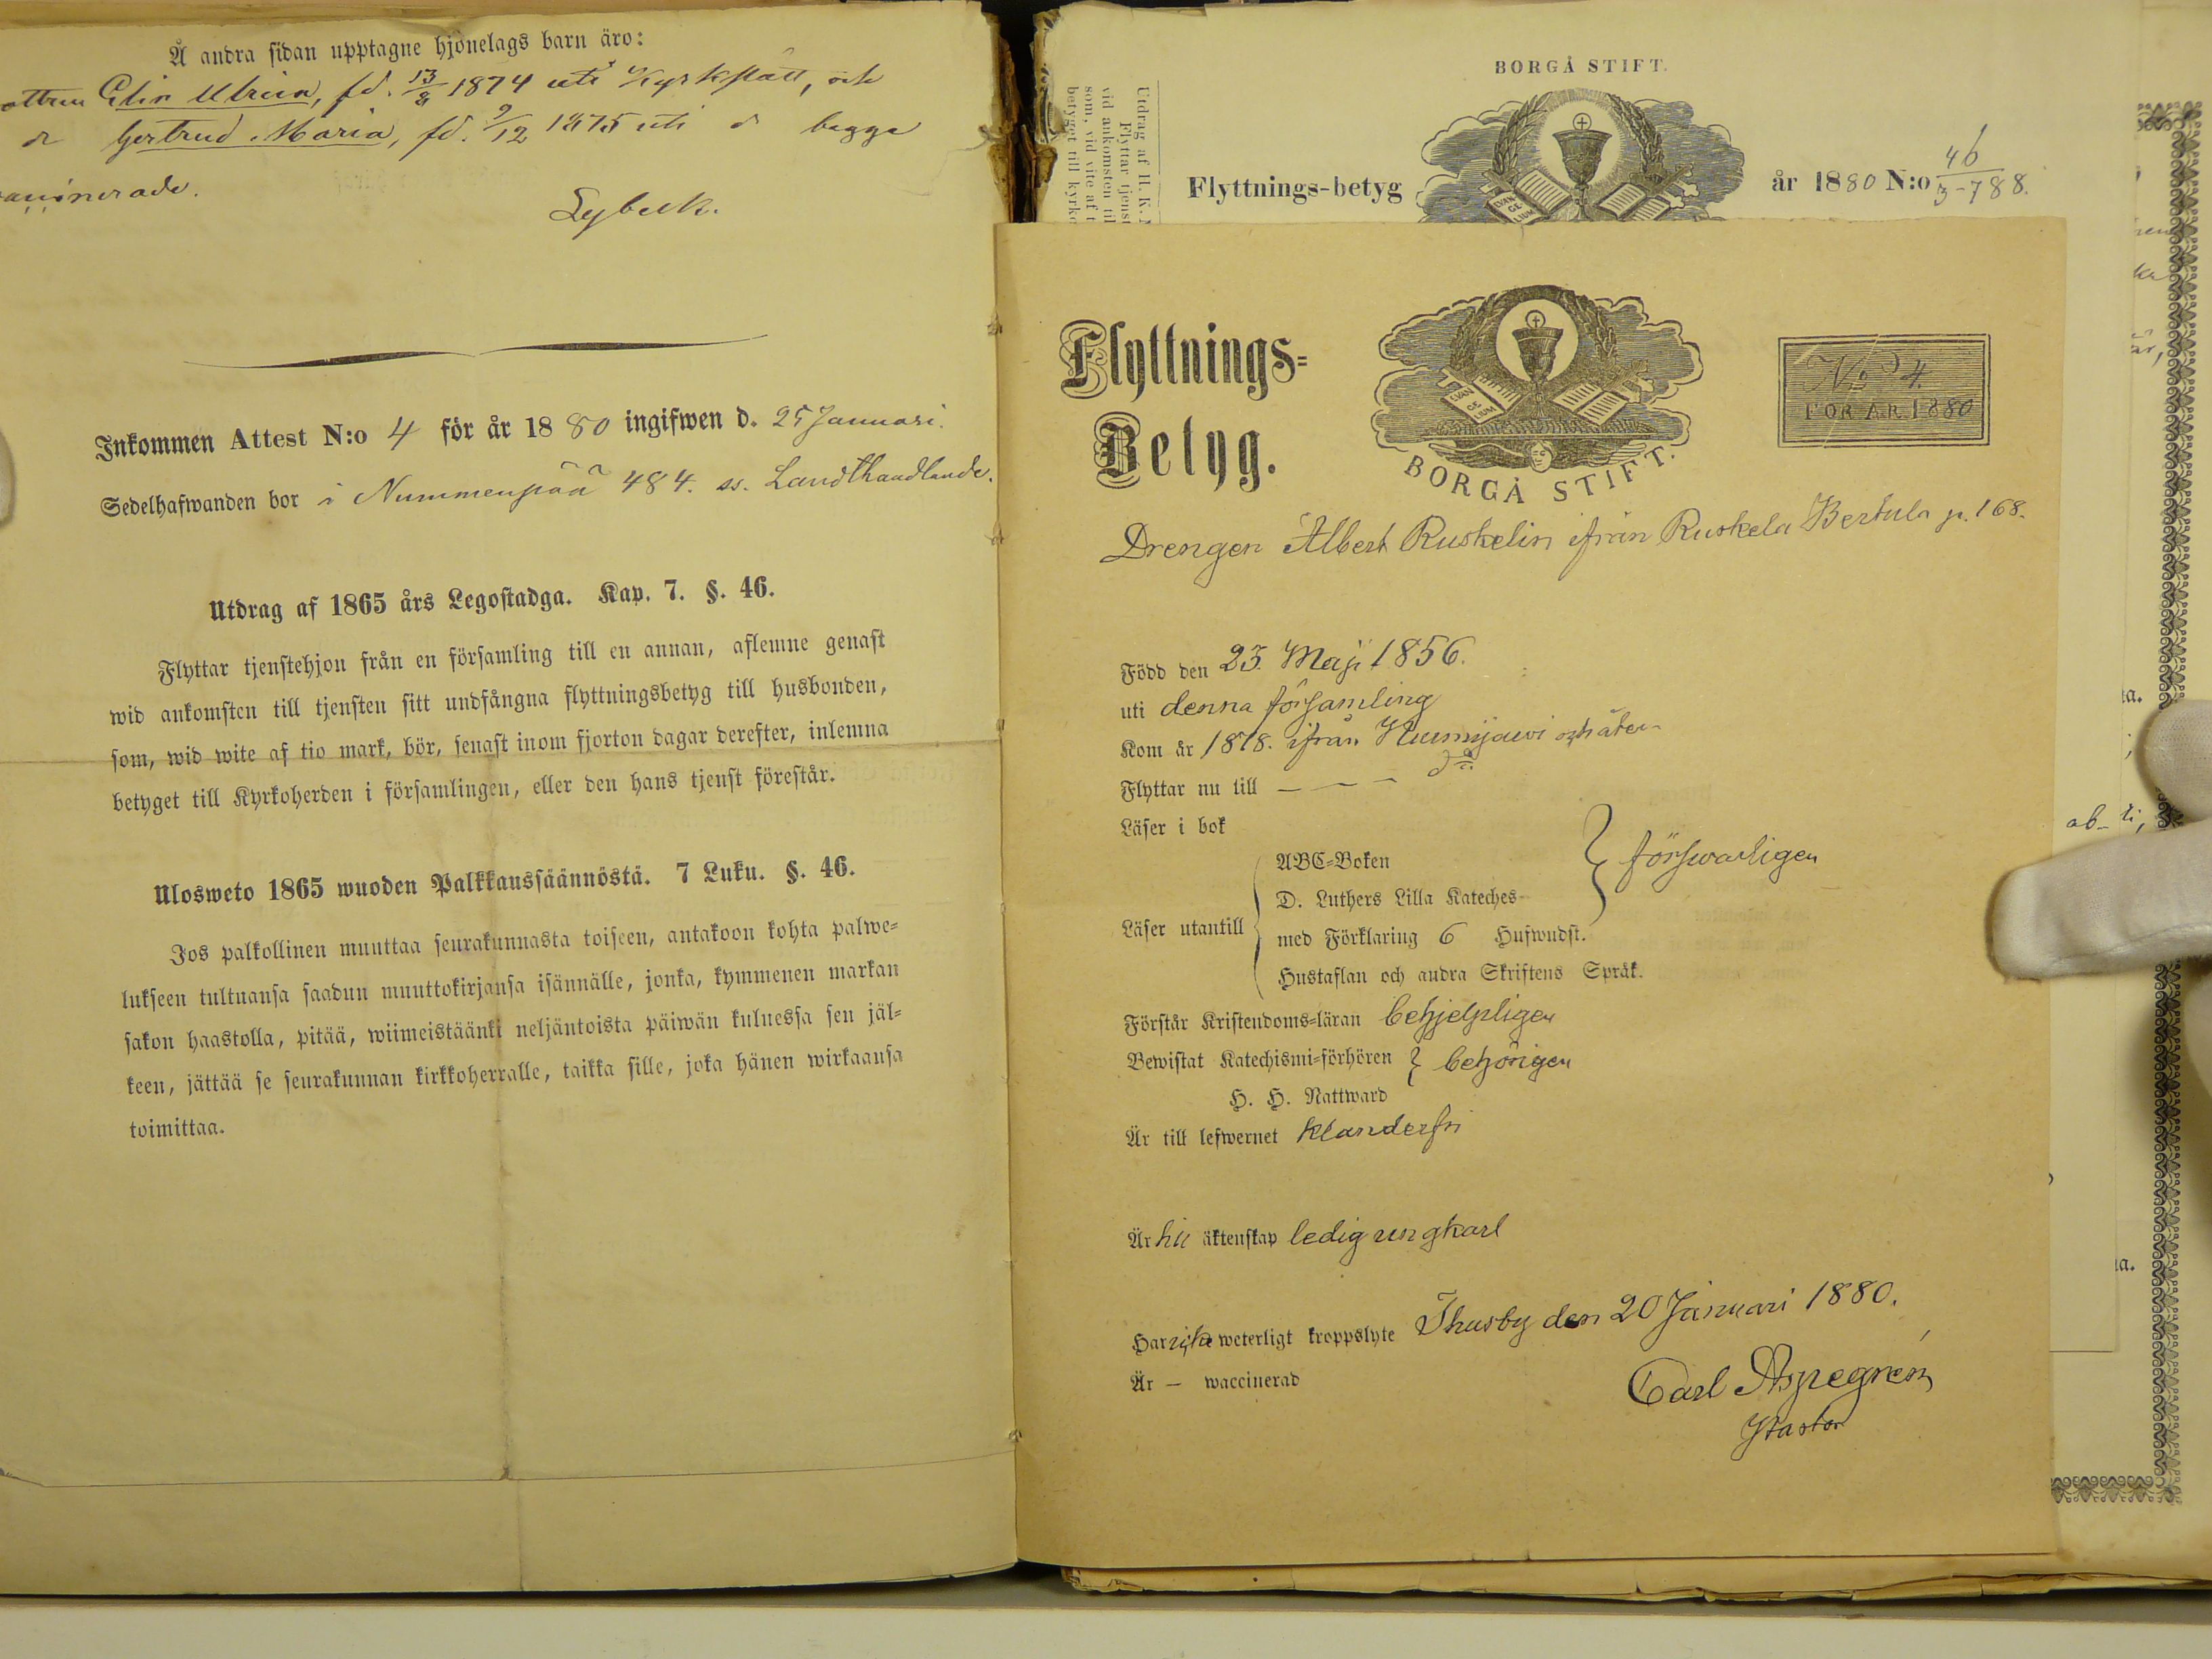 Å andra sidan upptagne hjonelags barn äro:
Elin Ulrica, fd. 13/8 1874 uti Kyrkslätt, och
d:o Gertrud Maria, fd. 9/12 1875 uti d:o begge
Lybeck.
Inkommen Attest N:o 4 för år 1880 ingifwen d. 25 Januari.
Sedelhafwanden bor i Nummenpää 484. ss. Landthandlande.
Utdrag af 1865 års Legostadga. Kap. 7. §. 46.
Flyttar tjenstehjon från en församling till en annan, aflemne genast
wid ankomsten till tjensten sitt undfångna flyttningsbetyg till husbonden,
som, wid wite af tio mark, bör, senast inom fjorton dagar derefter, inlemna
betyget till Kyrkoherden i församlingen, eller den hans tjenst förestår.
Ulosweto 1865 wuoden Palkkaussäännöstä. 7 Luku. §. 46.
Jos palkollinen muuttaa seurakunnasta toiseen, antakoon kohta palwe-
lukseen tultuansa saadun muuttokirjansa isännälle, jonka, kymmenen markan
sakon haastolla, pitää, wiimeistäänki neljäntoista päiwän kuluessa sen jäl-
keen, jättää se seurakunnan kirkkoherralle, taikka sille, joka hänen wirkaansa
toimittaa.
BORGÅ STIFT.
Flyttnings-betyg
år 1880 N:o 46
3-788.
Utdrag af H. K.
Flyttar tjenst
vid ankomsten til
som, vid vite af t
betyget till kyrko
EVAN
GE
LIUM
Flyttnings-
Betyg.
EVAN
GE
LIUM
BORGÅ STIFT.
No 4.
FÖR ÅR 1880
Drengen Albert Ruskelin ifrån Ruskela Bertula p. 168.
Född den 23. Maji 1856.
uti denna församling
Kom år 1878. ifrån Nurmijärvi och åter-
Flyttar nu till — — — d:o
Läser i bok
Läser utantill
ABC-Boken
D. Luthers Lilla Kateches
med Förklaring 6 Hufwudst.
Hustaflan och andra Skriftens Språk.
förswarligen
Förstår Kristendoms-läran behjelpligen
Bewistat Katechismi-förhören
H. H. Nattward
behörigen
Är till lefwernet klanderfri
Är till äktenskap ledig ungkarl
Har icke weterligt kroppslyte Thusby den 20 Januari 1880.
Är — waccinerad
Carl Aspegrén
Pastor